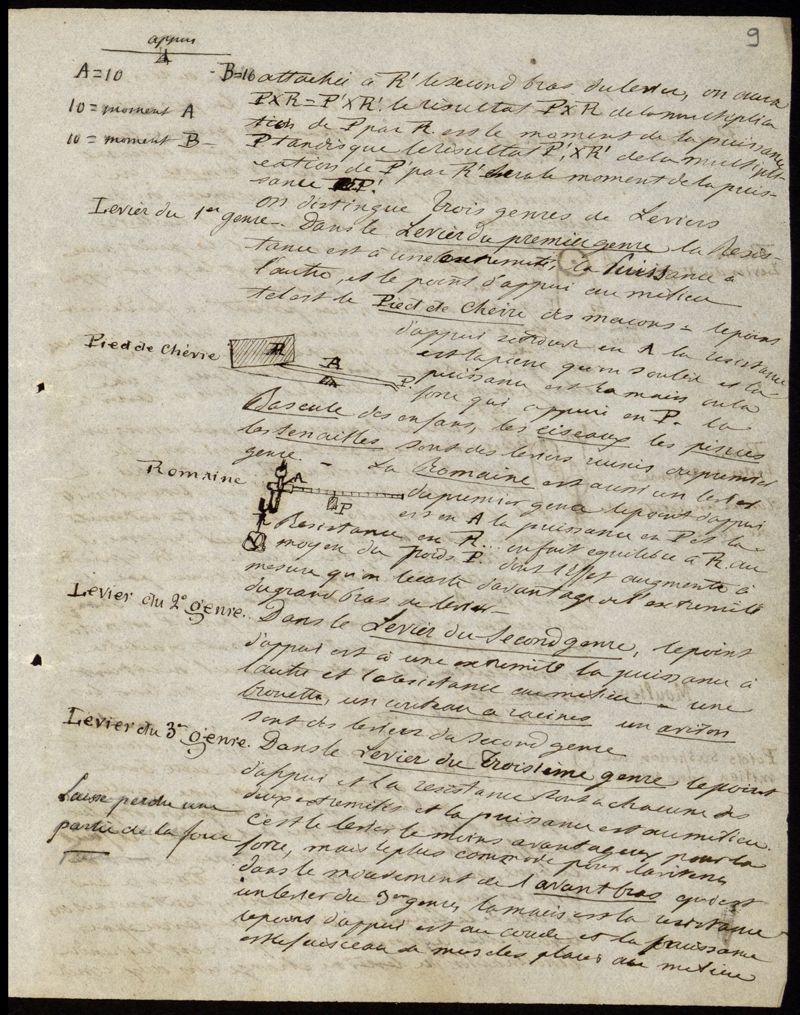 9
appui
A
A = 10 B = 10
10 = moment A
10 = moment B
attachée à R' le second bras du levier, on aura
P X R = P' X R'. le résultat P X R de la multiplica
tion de P par R est le moment de la puissance
P tandis que le résultat P' X R' de la multipli-
cation de P' par R' sera le moment de la puis-
sance P'.
on distingue Trois genres de Leviers
Levier du 1er genre. Dans le Levier du premier genre la Résis-
tance est à une extremité, la Puissance à
l'autre, et le point d'appui au milieu
tel est le Pied de Chèvre des maçons = le point
Pied de Chèvre
R A P
d'appui est en A la resistance
est la pierre qu'on soulève et la
puissance est la main ou la
force qui appuie en P. la
Bascule des enfans, les ciseaux les pinces
les tenailles sont des leviers réunis du premier
genre. - La Romaine est aussi un levier
Romaine
A P R
du premier genre le point d'appui
est en A la puissance en P et la
Resistance en R. on fait equilibre à R au
moyen du poids P dont l'effet augmente à
mesure qu'on l'ecarte davantage de l'extremité
du grand bras de levier
Levier du 2e genre. Dans le Levier du Second genre, le point
d'appui est à une extremité la puissance à
l'autre et la resistance au milieu = une
brouette, un couteau à racines un aviron
sont des leviers du second genre
Levier du 3me genre. Dans le Levier du Troisième genre le point
d'appui et la resistance sont à chacune des
deux extremités et la puissance est au milieu.
Laisse perdre une
partie de la force
c'est le levier le moins avantageux pour la
force, mais le plus commode pour la vitesse
dans le mouvement de l'avant bras qui est
un levier du 3me genre, la main est la resistance
le point d'appui est au coude et la puissance
est le faisceau de muscles placés au milieu